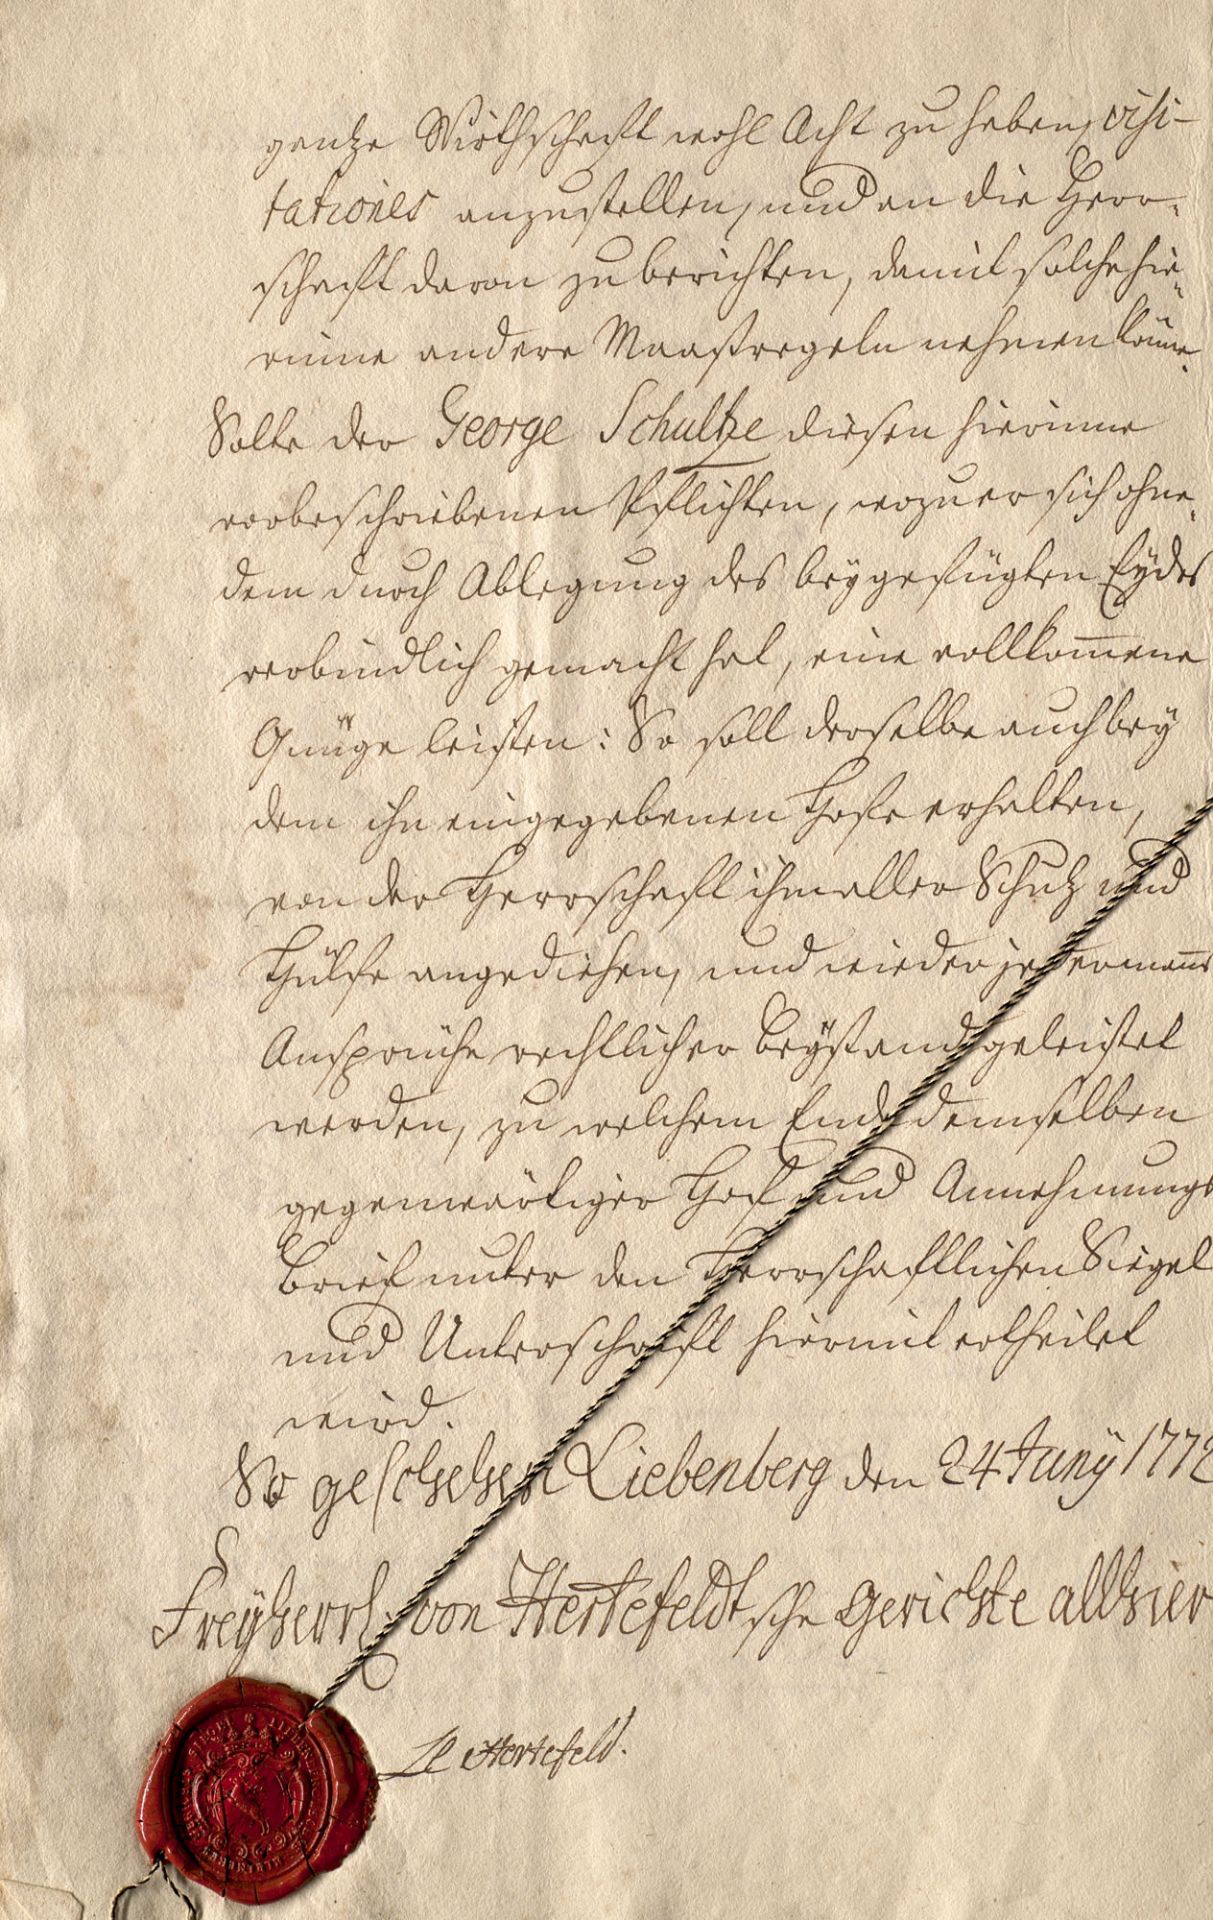 gantze Wirthschafft wohl Acht zu haben, visi-
tationes anzustellen, und an die Herr-
schafft davon zu berichten, damit solche hie-
rinne andere Maasregeln nehmen könne.
Solte der George Schultze diesen hierinne
vorbeschriebenen Pflichten, wozu er sich ohne-
dem durch Ablegung des beygefügten Eydes
verbindlich gemacht hat, eine vollkom̅ene
Gnüge leisten: So soll derselbe auch bey
dem ihn eingegebenen Hofe erhalten,
von der Herrschafft ihm aller Schutz und
Hülfe angediehen, und wieder jedermanns
Ansprüche rechtlicher Beystand geleistet
werden, zu welchem Ende demselben
gegenwärtiger Hof und Annehmungs
Brief unter den Herrschafftlichen Siegel
und Unterschrifft hiermit ertheilet
wird.
So geschehen Liebenberg den 24 Juny 1772
Freyherrl. von Hertefeldtsche Gerichte allhier
Hertefeld.